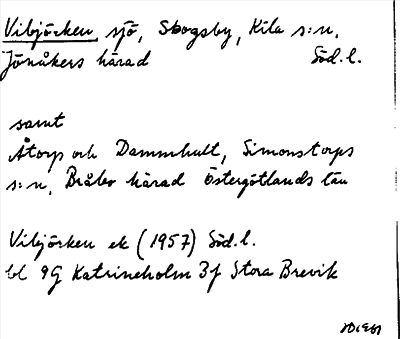 Vibjörken, sjö, Skogsby, Kila s:n,
Jönåkers härad Söd.l.
samt
Åtorp och Dammhult, Simonstorps
s:n, Bråbo härad Östergötlands län
Vibjörken ek (1957) Söd.l.
bl 9G Katrineholm 3f Stora Brevik